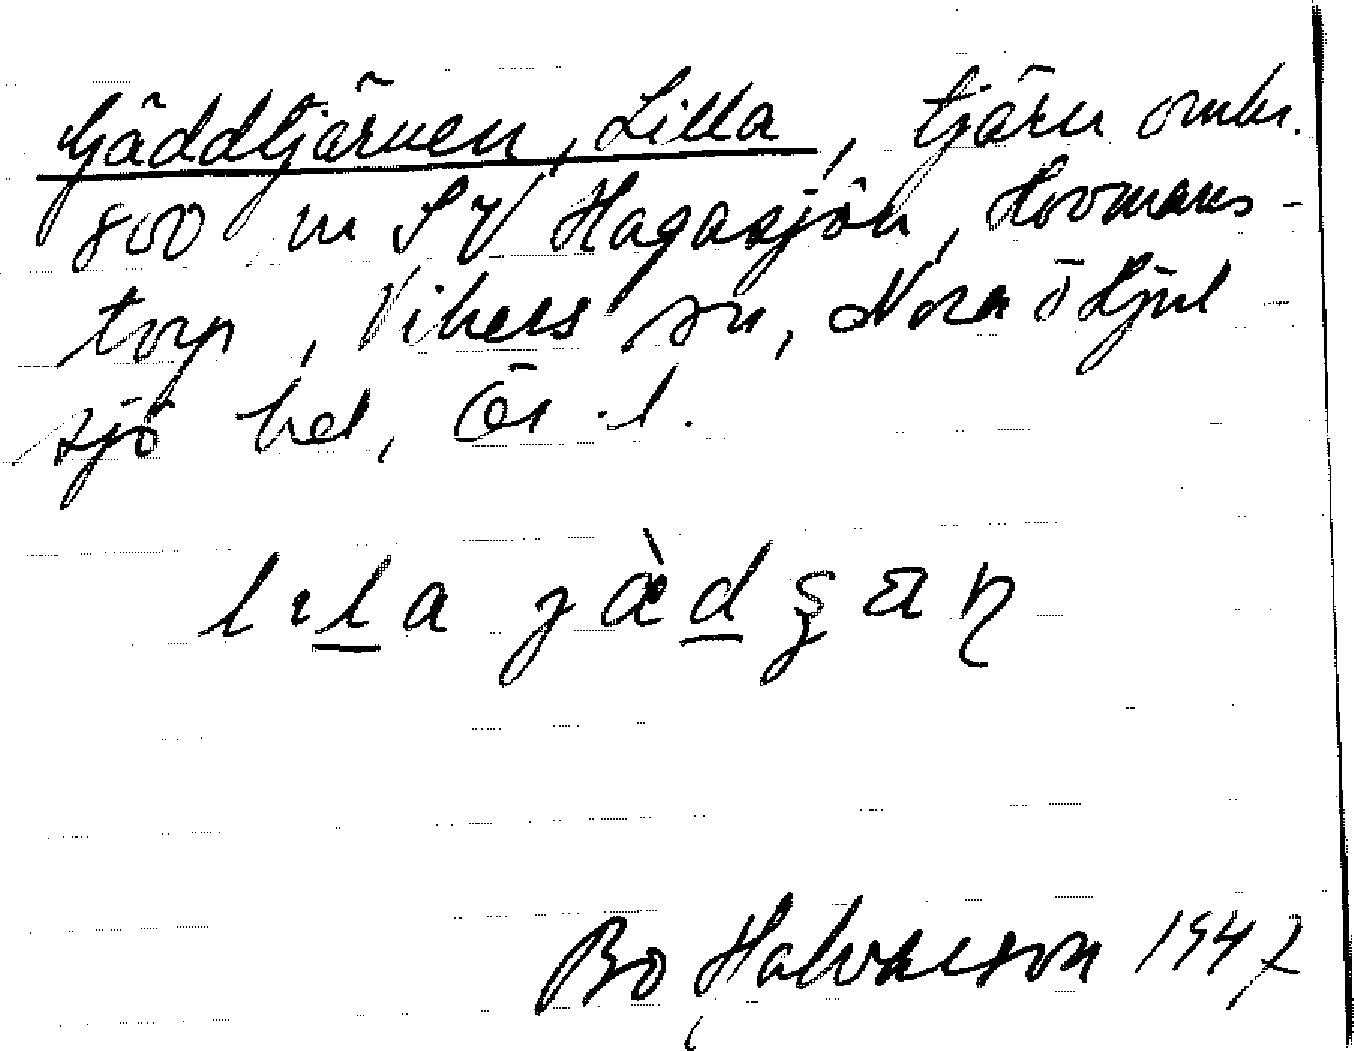 Gäddtjärnen, Lilla, tjärn omkr.
800 m SV Hagasjön, Hovmans-
torp, Vikers sn, Nora o Hjul
sjö bel, Ör. l.
lɩla jæ̀dʂæɳ
Bo Halvarson 1947